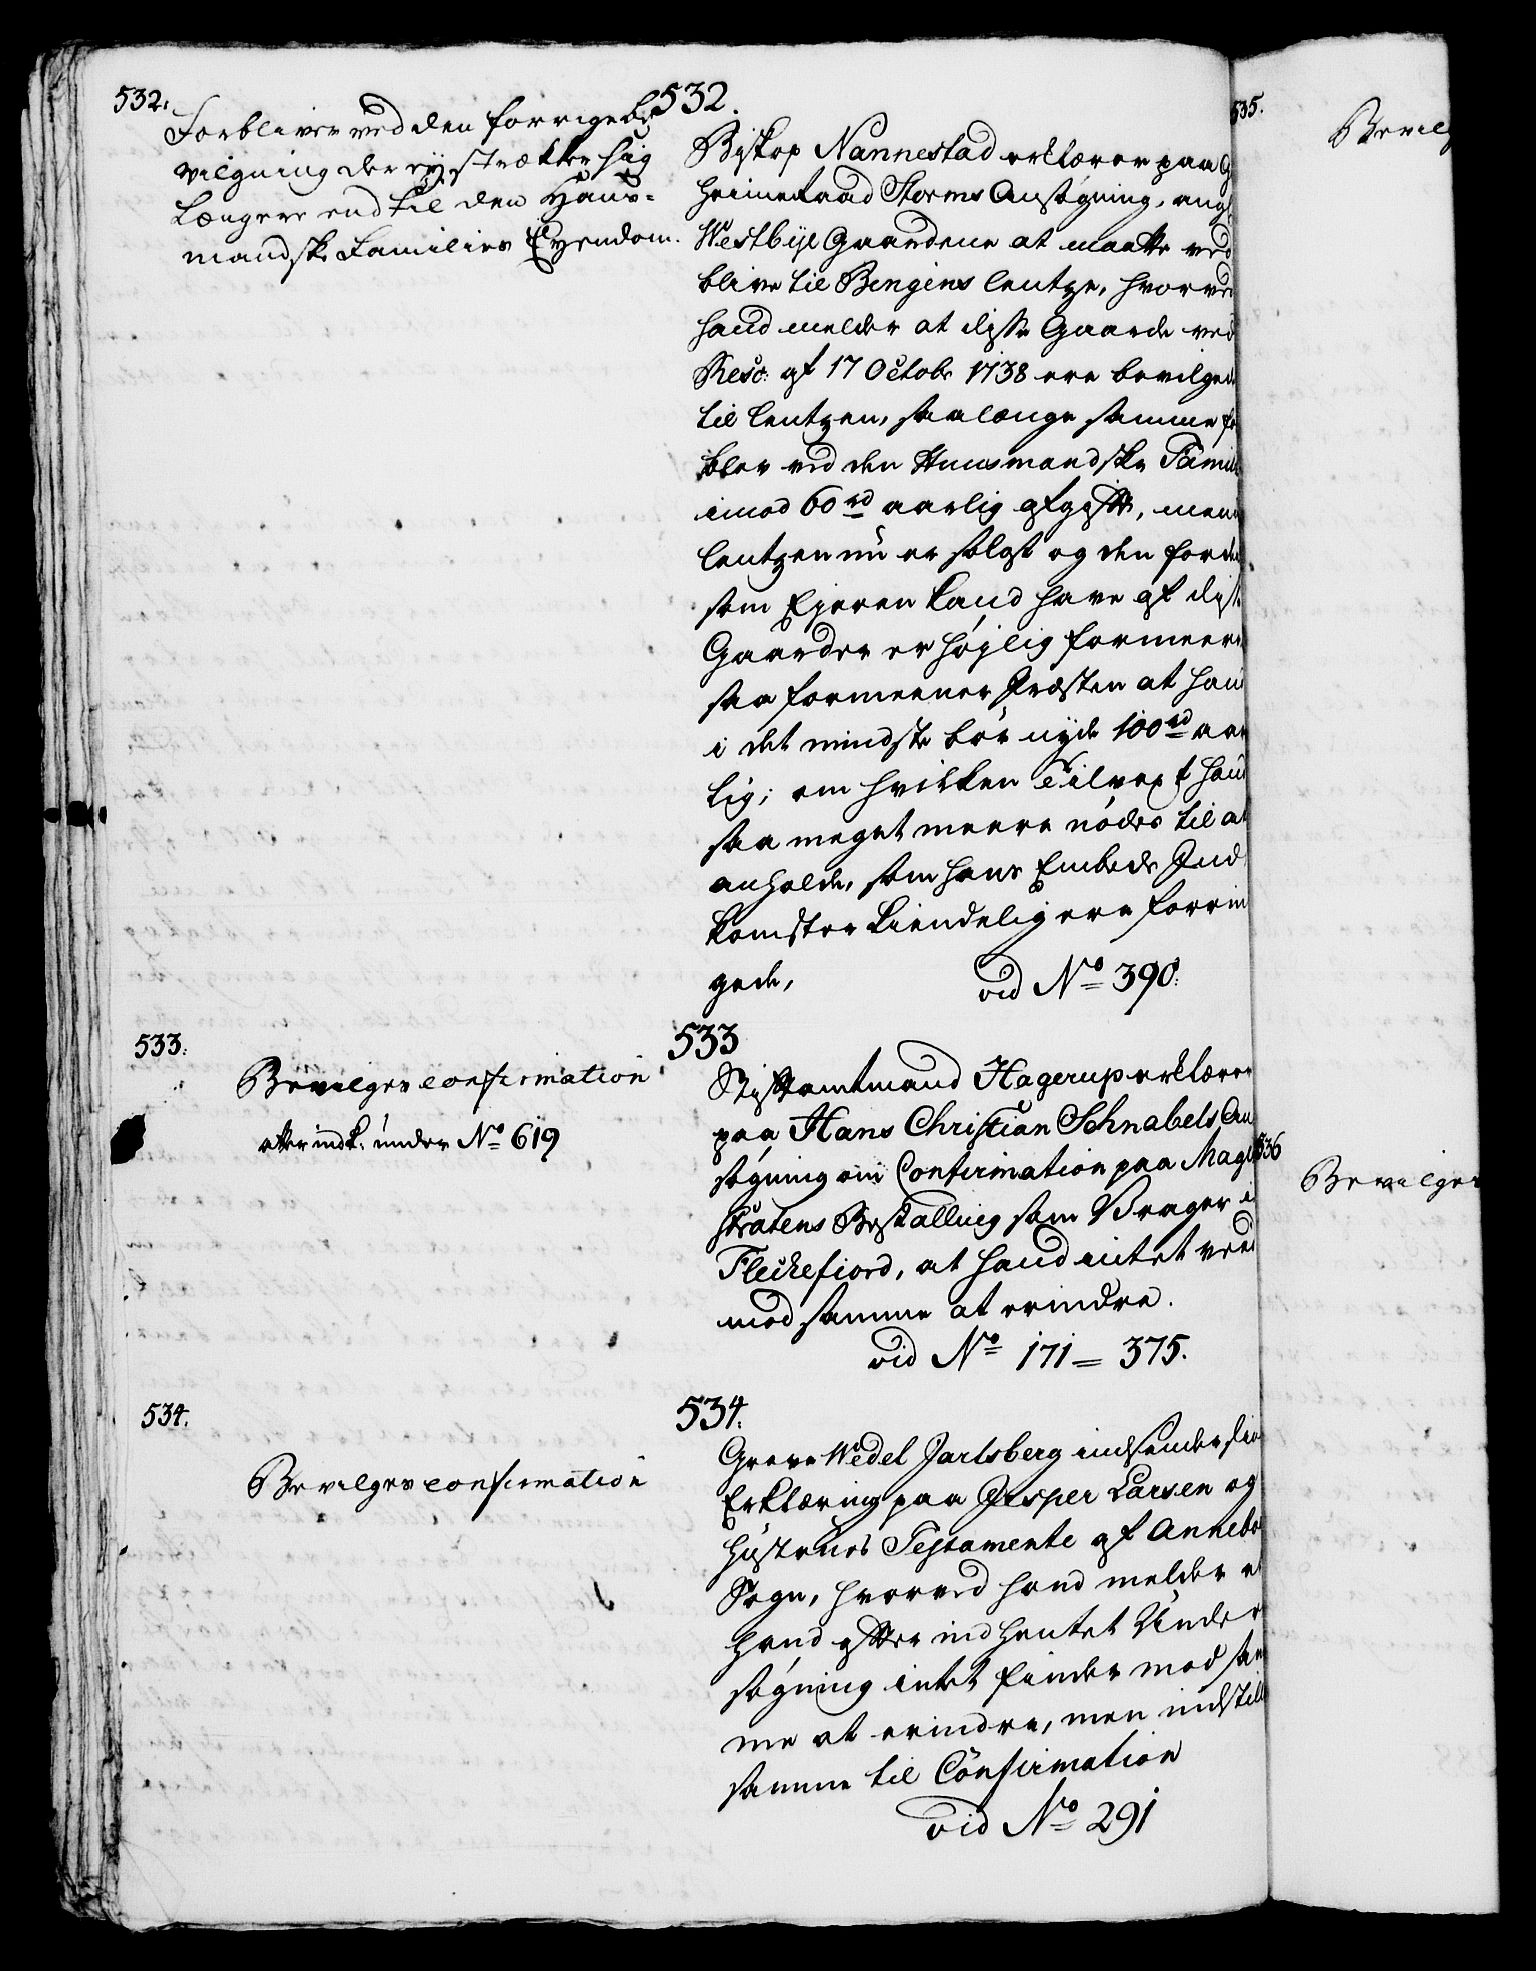 532.
Forbliver ved den forrige be
vilgning der ey strækker sig
længere end til den Haus-
mandske Families Eyendom.
532.
Biskop Nannestad erklærer paa G
heimeraad Storms Ansøgning, ang
Westbye Gaardene at maatte ved
blive til Bergens lentze, hvorved
hand melder at disse Gaarde ved
Reso: af 17 Octobr 1738 ere bevilgede
til lentzen, saalænge samme for
blev ved den Huusmandske Famili
imod 60 rd aarlig afgift, men
lentzen nu er solgt og den fordel
som Ejeren kand have af disse
Gaarder er højlig formeeret
saa formeener Præsten at hand
i det mindste bør nyde 100 rd aar
lig; om hvilken Tilvext hand
saa meget meere nødes til at
anholde, som hans Embeds Ind
komster kiendelig ere forrin
gede,
vid No 390.
533.
Bevilges confirmation
atter indk. under No 619
533
Stiftamtmand Hagerup erklærer
paa Hans Christian Schnabels An
søgning om Confirmation paa Magi
stratens Bestalling som Vrager i
Fleckefiord, at hand intet veed
mod samme at erindre.
vid No 171 = 375.
534.
Bevilges confirmation
534.
Greve Wedel Jarlsberg indsender sin
Erklæring paa Jesper Larsen og
Hustrues Testamente af Annebo
Sogn, hvorved hand melder at
hand efter indhentet Under
søgning intet finder mod sam
me at erindre, men indstill
samme til Confirmation
vid No 291
535.
Bevilg
536
Bevilges